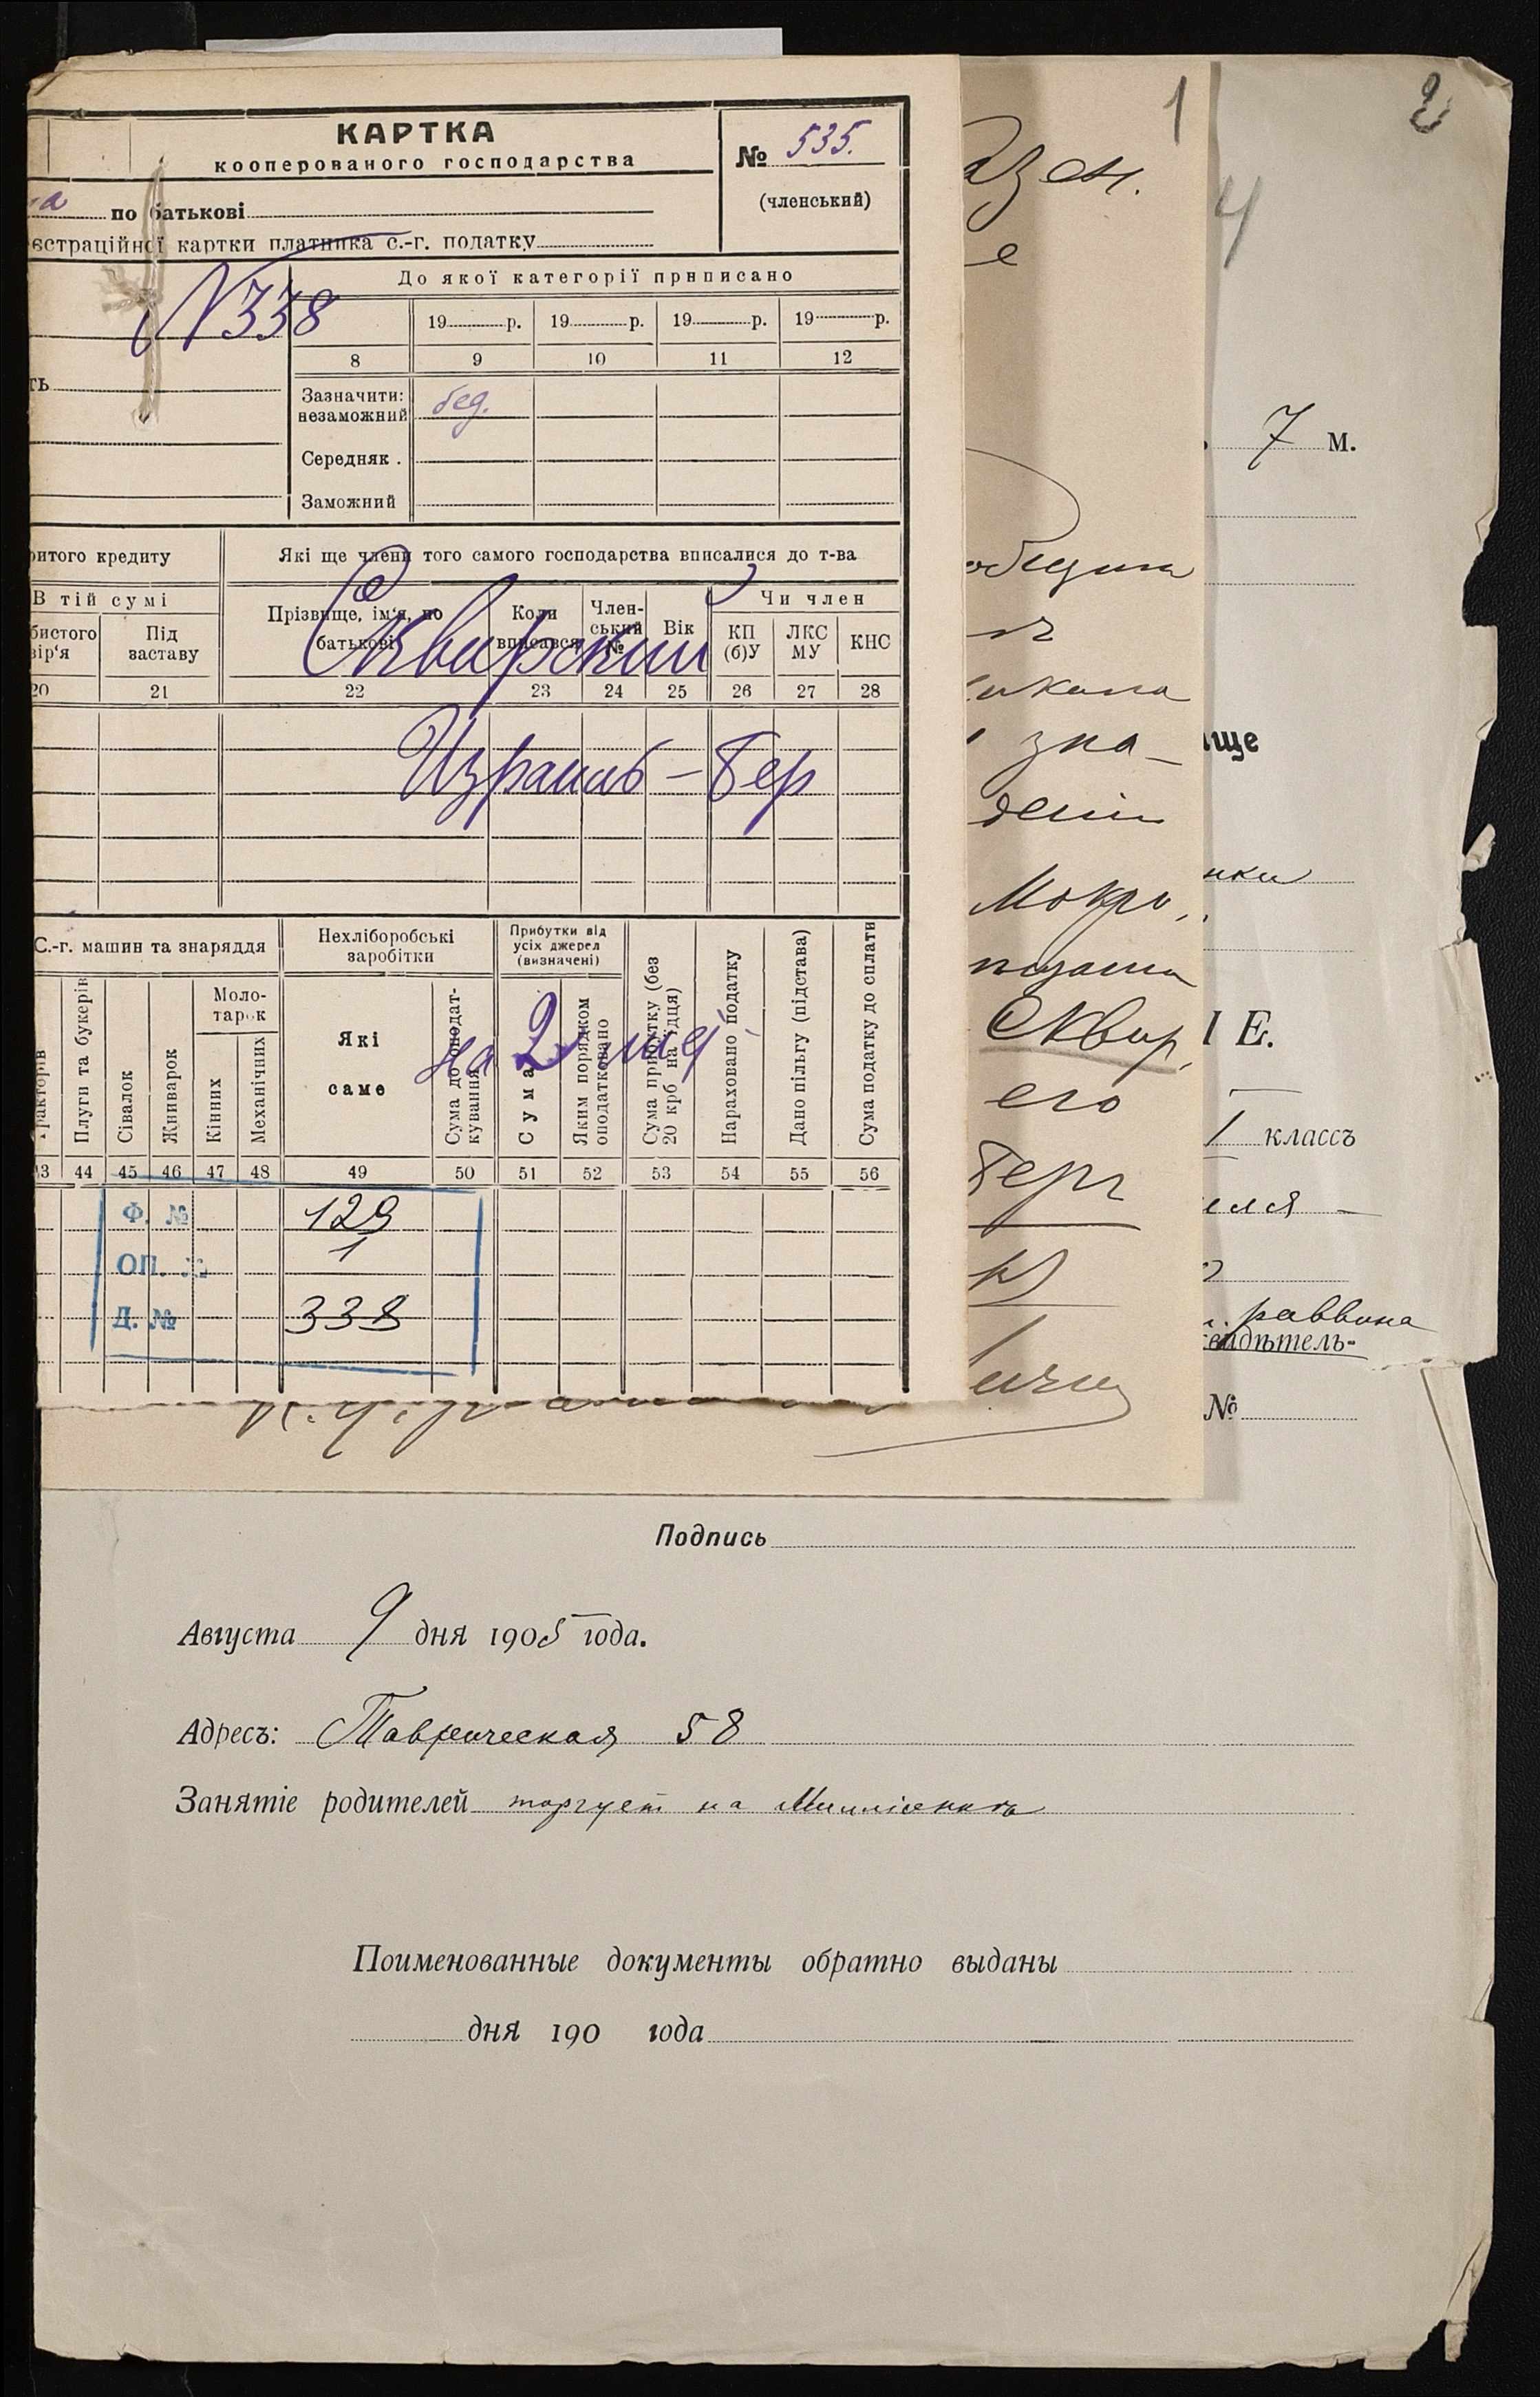 КАРТКА
кооперованого господарства
№ 535.
(членський)
по батькові
єстраційної картки платника с.-г. податку
N 338
До якої категорії прнписано
19 р. 19 р. 19 р. 19 р.
8 9 10 11 12
Зазначити:
незаможний бед.
Середняк .
Заможний
ритого кредиту
Які ще члени того самого господарства вписалися до т-ва
В тій сумі
бистого
вір‘я
Під
заставу
Прізвище, ім‘я, по
батькові
Коли
вписався
Член-
ський
№
Вік
Чи член
КП
(б)У
ЛКС
МУ
КНС
20 21 22 23 24 25 26 27 28
Сквирский
Израиль-Бер
на 2 лис.
С.-г. машин та знаряддя
Нехліборобські
заробітки
Прибутки від
усіх джерел
(визначені)
тракторів
Плуги та букерів
Сівалок
Жниварок
Моло-
тарок
Кінних
Механічних
Які
саме
Сума до оподат-
кування
Сума
Яким порядком
оподатковано
Сума прибутку (без
20 крб на їдця)
Нараховано податку
Дано пільгу (підстава)
Сума податку до сплати
43 44 45 46 47 48 49 50 51 52 53 54 55 56
Ф. № 129
ОП. № 1
Д. № 338
1
2
4
зна-
Мокро
Сквир
его
Берг
7 м.
ще
ІЕ.
I классъ
раввина
свидѣтель-
№
Подпись
Августа 9 дня 1905 года.
Адресъ: Таврическая 58
Занятіе родителей торгует на
Поименованные документы обратно выданы
дня 190 года